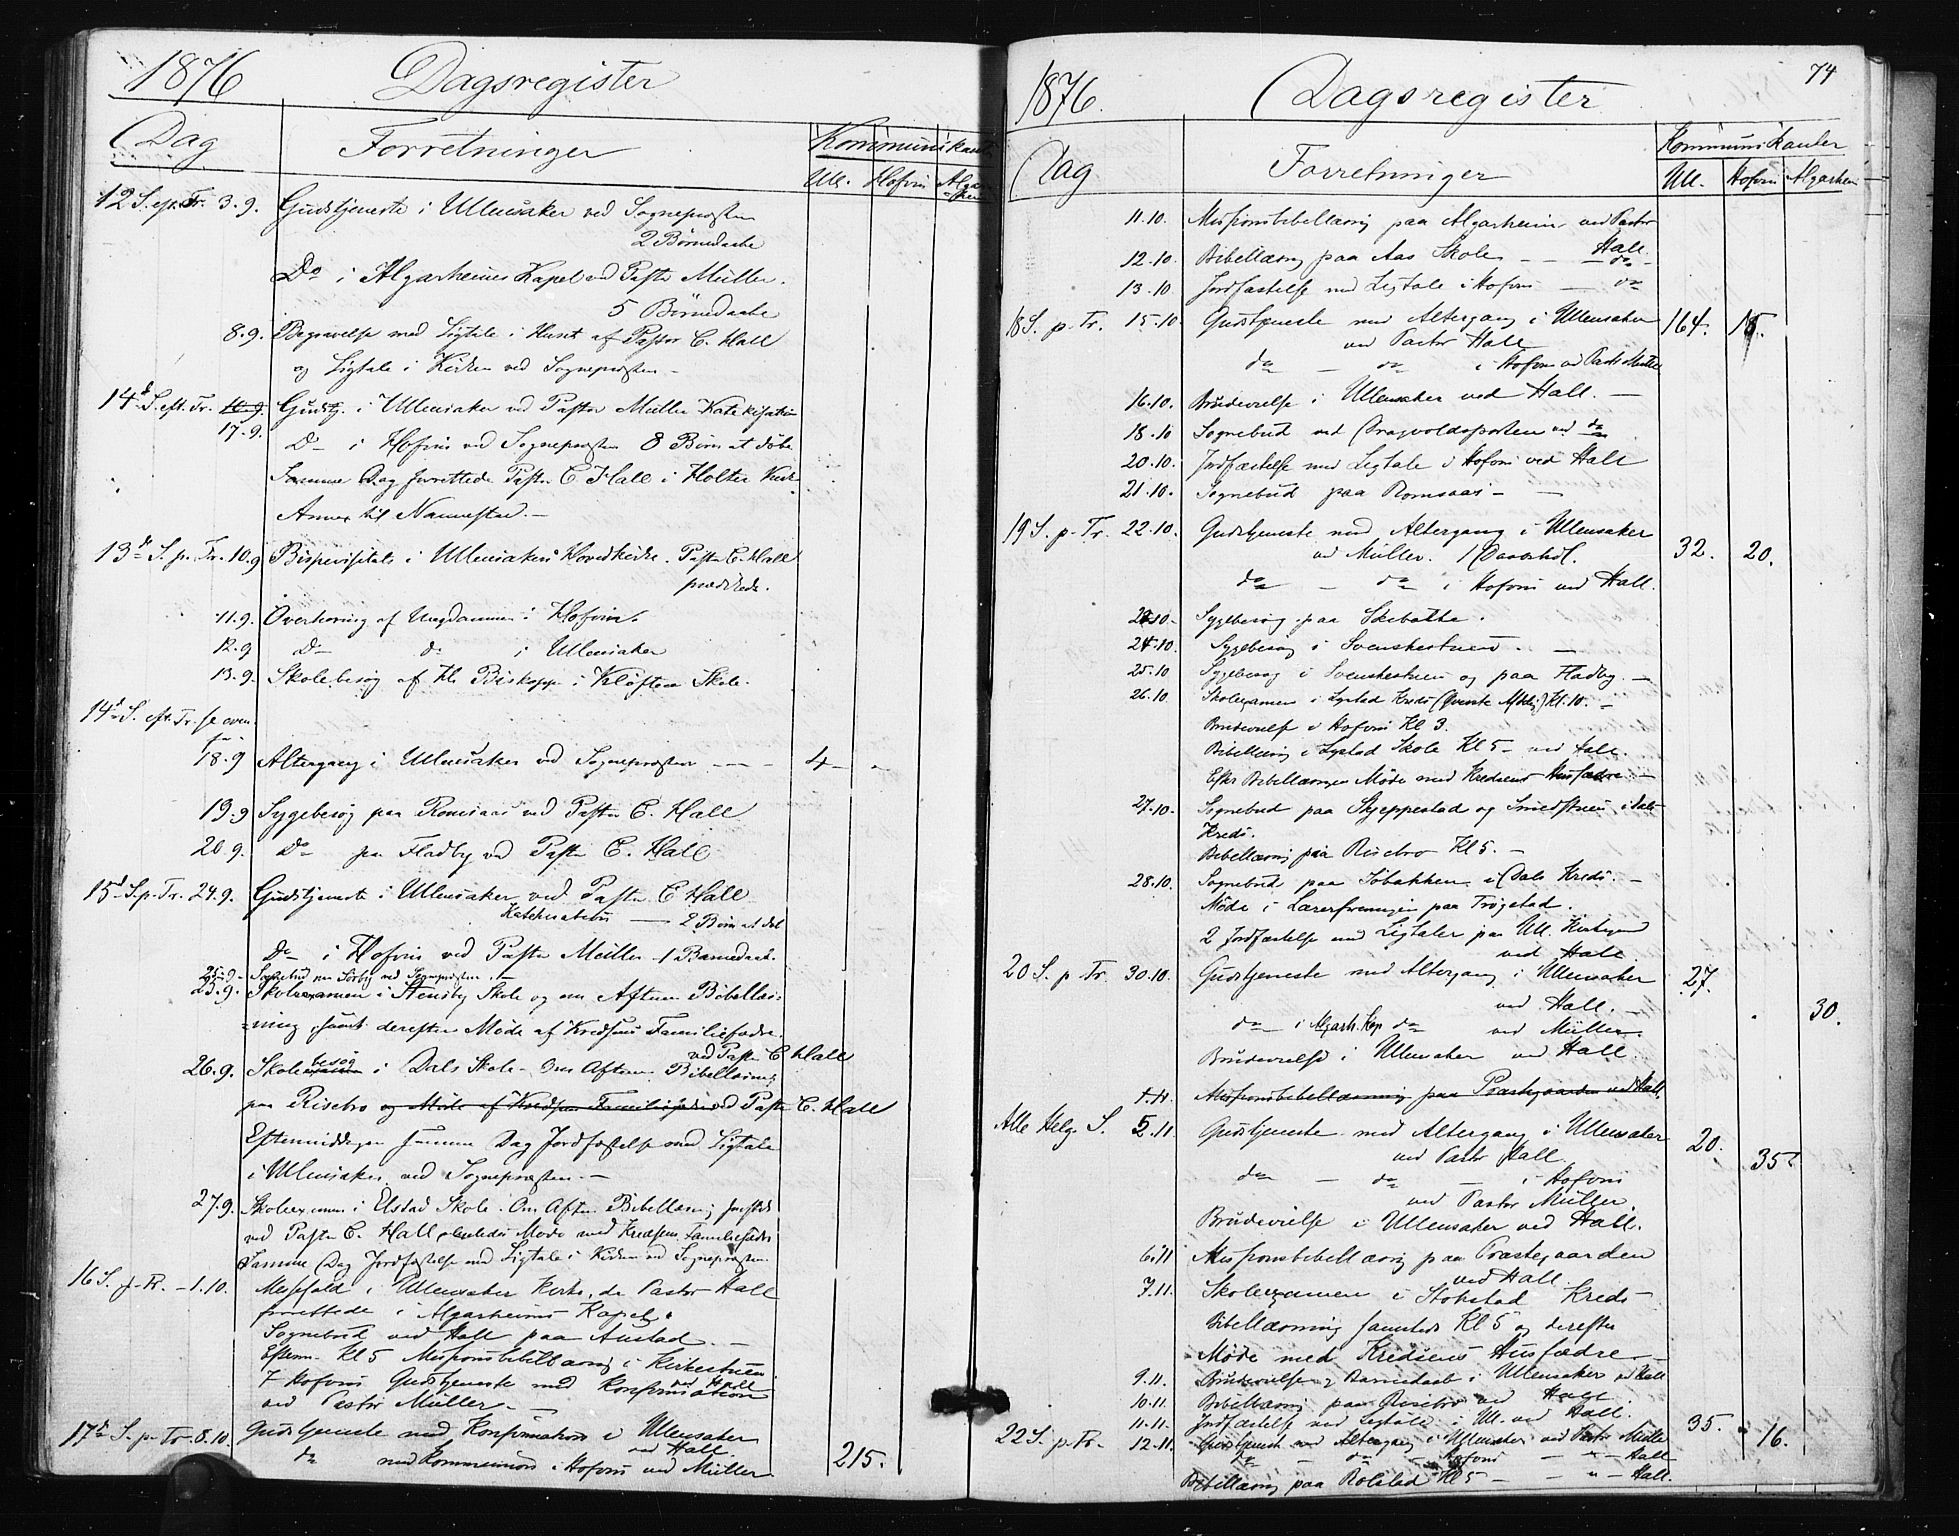 1876 Dagsregister
Dag Forretninger Kommunikant
Ull. Hofvin Algarheim
12 S. eft. Tr. 3.9. Gudstjeneste i Ullensaker ved Sognepræsten
2 Børnedaabe
Do i Algarheims Kapel ved Pastor Müller.
5 Børnedaabe
8.9. Begravelse med Ligtale i Huset af Pastor C. Hall
og Ligtale i Kirken ved Sognepræsten –
14d S. eft. Tr. 10.9. Gudstj. i Ullensaker ved Pastor Müller Katekisation
17.9. Do i Hofvin ved Sognepræsten 8 Børn at døbe
Samme Dag forrettede Pastor C Hall i Holter Kirke
Annex til Nannestad. –
13de S. p. Tr. 10.9 Bispevisitats i Ullensakers Hovedkirke. Pastor C. Hall
prædikede.
11.9. Overhøring af Ungdommen i Hofvin.
12.9 Do do i Ullensaker
13.9. Skolebesøg af Hr Biskopp i Kløften Skole.
14d S. eft. Tr. se oven
for
18.9 Altergang i Ullensaker ved Sognepræsten – – – 4 –
19.9 Sygebesøg paa Romsaas ved Pastor C. Hall
20.9. Do paa Fladby ved Pastor C. Hall
15d S. p. Tr. 24.9. Gudstjeneste i Ullensaker ved Pastor C Hall
Katekisation — 2 Børn at døbe
Do i Hofvin ved Pastor Müller 1 Barnedaab.
25.9. Sognebud paa Sørby ved Sognepræsten. –
25.9. Skoleexamen i Stensby Skole og om Aftenen Bibellæs-
ning, samt derefter Møde af Kredsens Familiefædre
ved Pastor C Hall
26.9. Skolebesøg i Dals Skole – Om Aftenen Bibellæsning
paa Risebro og Møde af Kredsens Familiefædre ved Pastor C. Hall
Eftermiddagen samme Dag Jordfæstelse med Ligtale
i Ullensaker ved Sognepræsten. –
27.9. Skoleexamen i Elstad Skole. Om Aften Bibellæsning sammesteds
ved Pastor C. Hall, ligeledes Møde med Kredsens Familiefædre
Samme Dag Jordfæstelse med Ligtale i Kirken ved Sognepræsten.
16 S. p. Tr. – 1.10. Messefald i Ullensaker Kirke, da Pastor Hall
forrettede i Algarheims Kapel.
Sognebud ved Hall paa Austad. –
Efterm. Kl 5 Missionsbibellæsning i Kirkestuen
ved Hall
I Hofvin Gudstjeneste med Konfirmation
ved Pastor Müller. –
17de S. p. Tr. 8.10. Gudstjeneste med Konfirmation i Ullensaker
ved Hall.
do med Kommunion i Hofvin ved Müller. 215.
74
1876. Dagsregister
Dag Forretninger Kommunikanter
Ull. Hofvin Algarheim
11.10. Missionsbibellæsning paa Algarheim ved Pastor
Hall.
12.10. Bibellæsning paa Aas Skole – – do –
13.10. Jordfæstelse med Ligtale i Hofvin — do
18 S. p. Tr. 15.10. Gudstjeneste med Altergang i Ullensaker 164. 15.
ved Pastor Hall
do – do i Hofvin ved Pastor Müller
16.10. Brudevielse i Ullensaker ved Hall. –
18.10 Sognebud ved Dragvoldsporten ved do
20.10. Jordfæstelse med Ligtale i Hofvin ved Hall
21.10. Sognebud paa Romsaas – –
19 S. p. Tr. 22.10. Gudstjeneste med Altergang i Ullensaker 32. 20.
ved Müller. 1 Daabshdl.
do – do i Hofvin ved Hall.
23.10. Sygebesøg paa Skibakke.
24.10. Sygebesøg i Svenskestuen. –
25.10 Sygebesøg i Svenskestuen og paa Fladby. –
26.10 Skoleexamen i Lystad Kreds (øverste Afdeling) Kl. 10. –
Brudevielse i Hofvin Kl 3.
Bibellæsning i Lystad Skole Kl 5 – ved Hall.
Efter Bibellæsningen Møde med Kredsens Husfædre. –
27.10. Sognebud paa Skjeppestad og Smedstuen i Dals
Kreds.
Bibellæsning paa Risebro Kl 5. –
28.10. Sognebud paa Tobakken i Dals Kreds. –
Møde i Lærerforeningen paa Trøgstad.
2 Jordfæstelse med Ligtaler paa Ull. Kirkegaard
ved Hall
20 S. p. Tr. 30.10. Gudstjeneste med Altergang i Ullensaker 27.
ved Hall.
do – i Algarh. Kap do ved Müller. 30.
Brudevielse i Ullensaker ved Hall.
1.11. Missionsbibellæsning paa Præstegaarden ved Hall.
Alle Helg. S. 5.11. Gudstjeneste med Altergang i Ullensaker 20.
ved Pastor Hall.
do – do – i Hofvin 35
ved Pastor Müller.
Brudevielse i Ullensaker ved Hall.
6.11 Missionsbibellæsning paa Præstegaarden
ved Hall.
7.11. Skoleexamen i Stokstad Kreds
Bibellæsning samsteds Kl 5 og derefter
Møde med Kredsens Husfædre –
9.11. Brudevielse og Barnedaab i Ullensaker ved Hall
10.11. Bibellæsning paa Risebro ved Hall.
11.11. Jordfæstelse med Ligtale i Ull. ved Hall.
22 S. p. Tr. 12.11. Gudstjeneste med Altergang i Ullensaker ved Pastor Müller 35. 16.
do – do – Hofvin – " – Hall
Bibellæsning paa Rølstad Kl 5 – – " – Hall.